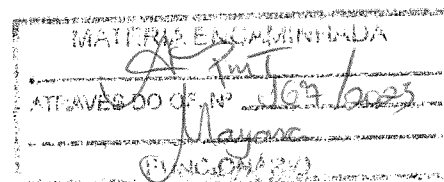 MATÉRIA ENCAMINHADA
A PMT
ATRAVÉS DO OF. Nº 167/2023
Mayara
FUNCIONÁRIO